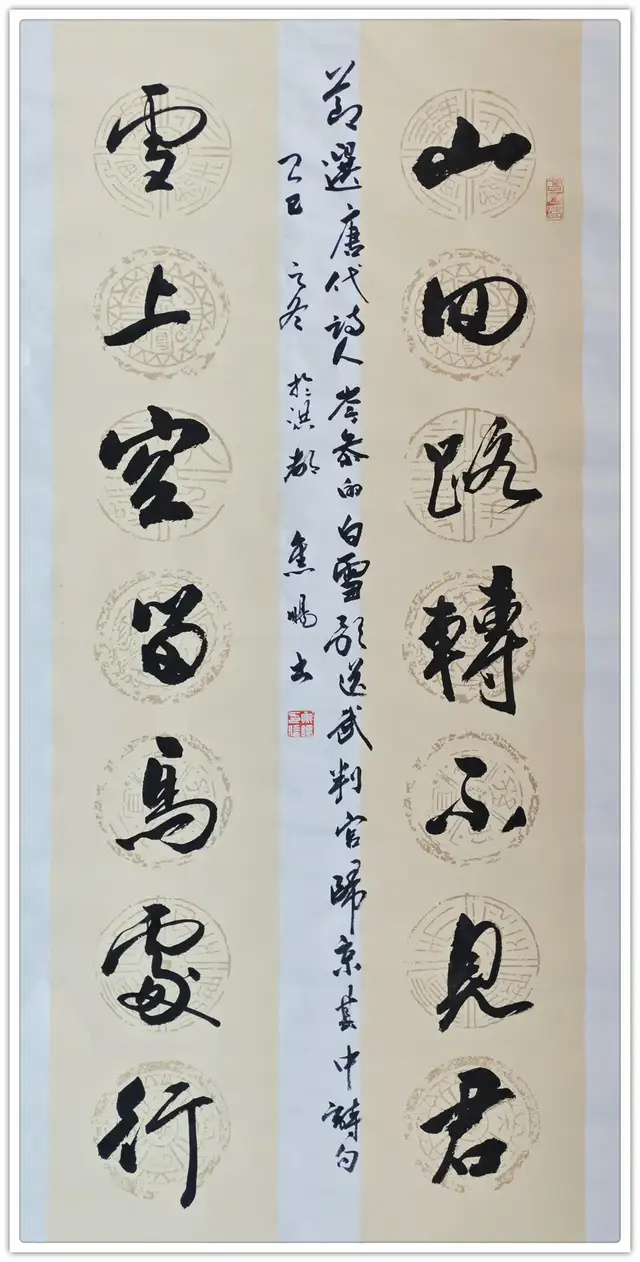 山回路轉不見君
雪上空留馬處行
節選唐代詩人岑參的白雪歌送武判官歸京其中詩句
乙巳之冬於淇都焦暢書